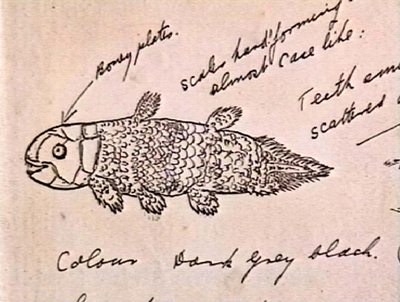 Boney plates.
scales hard forming
almost case like:
Teeth
scattered
Colour Dark Grey black.